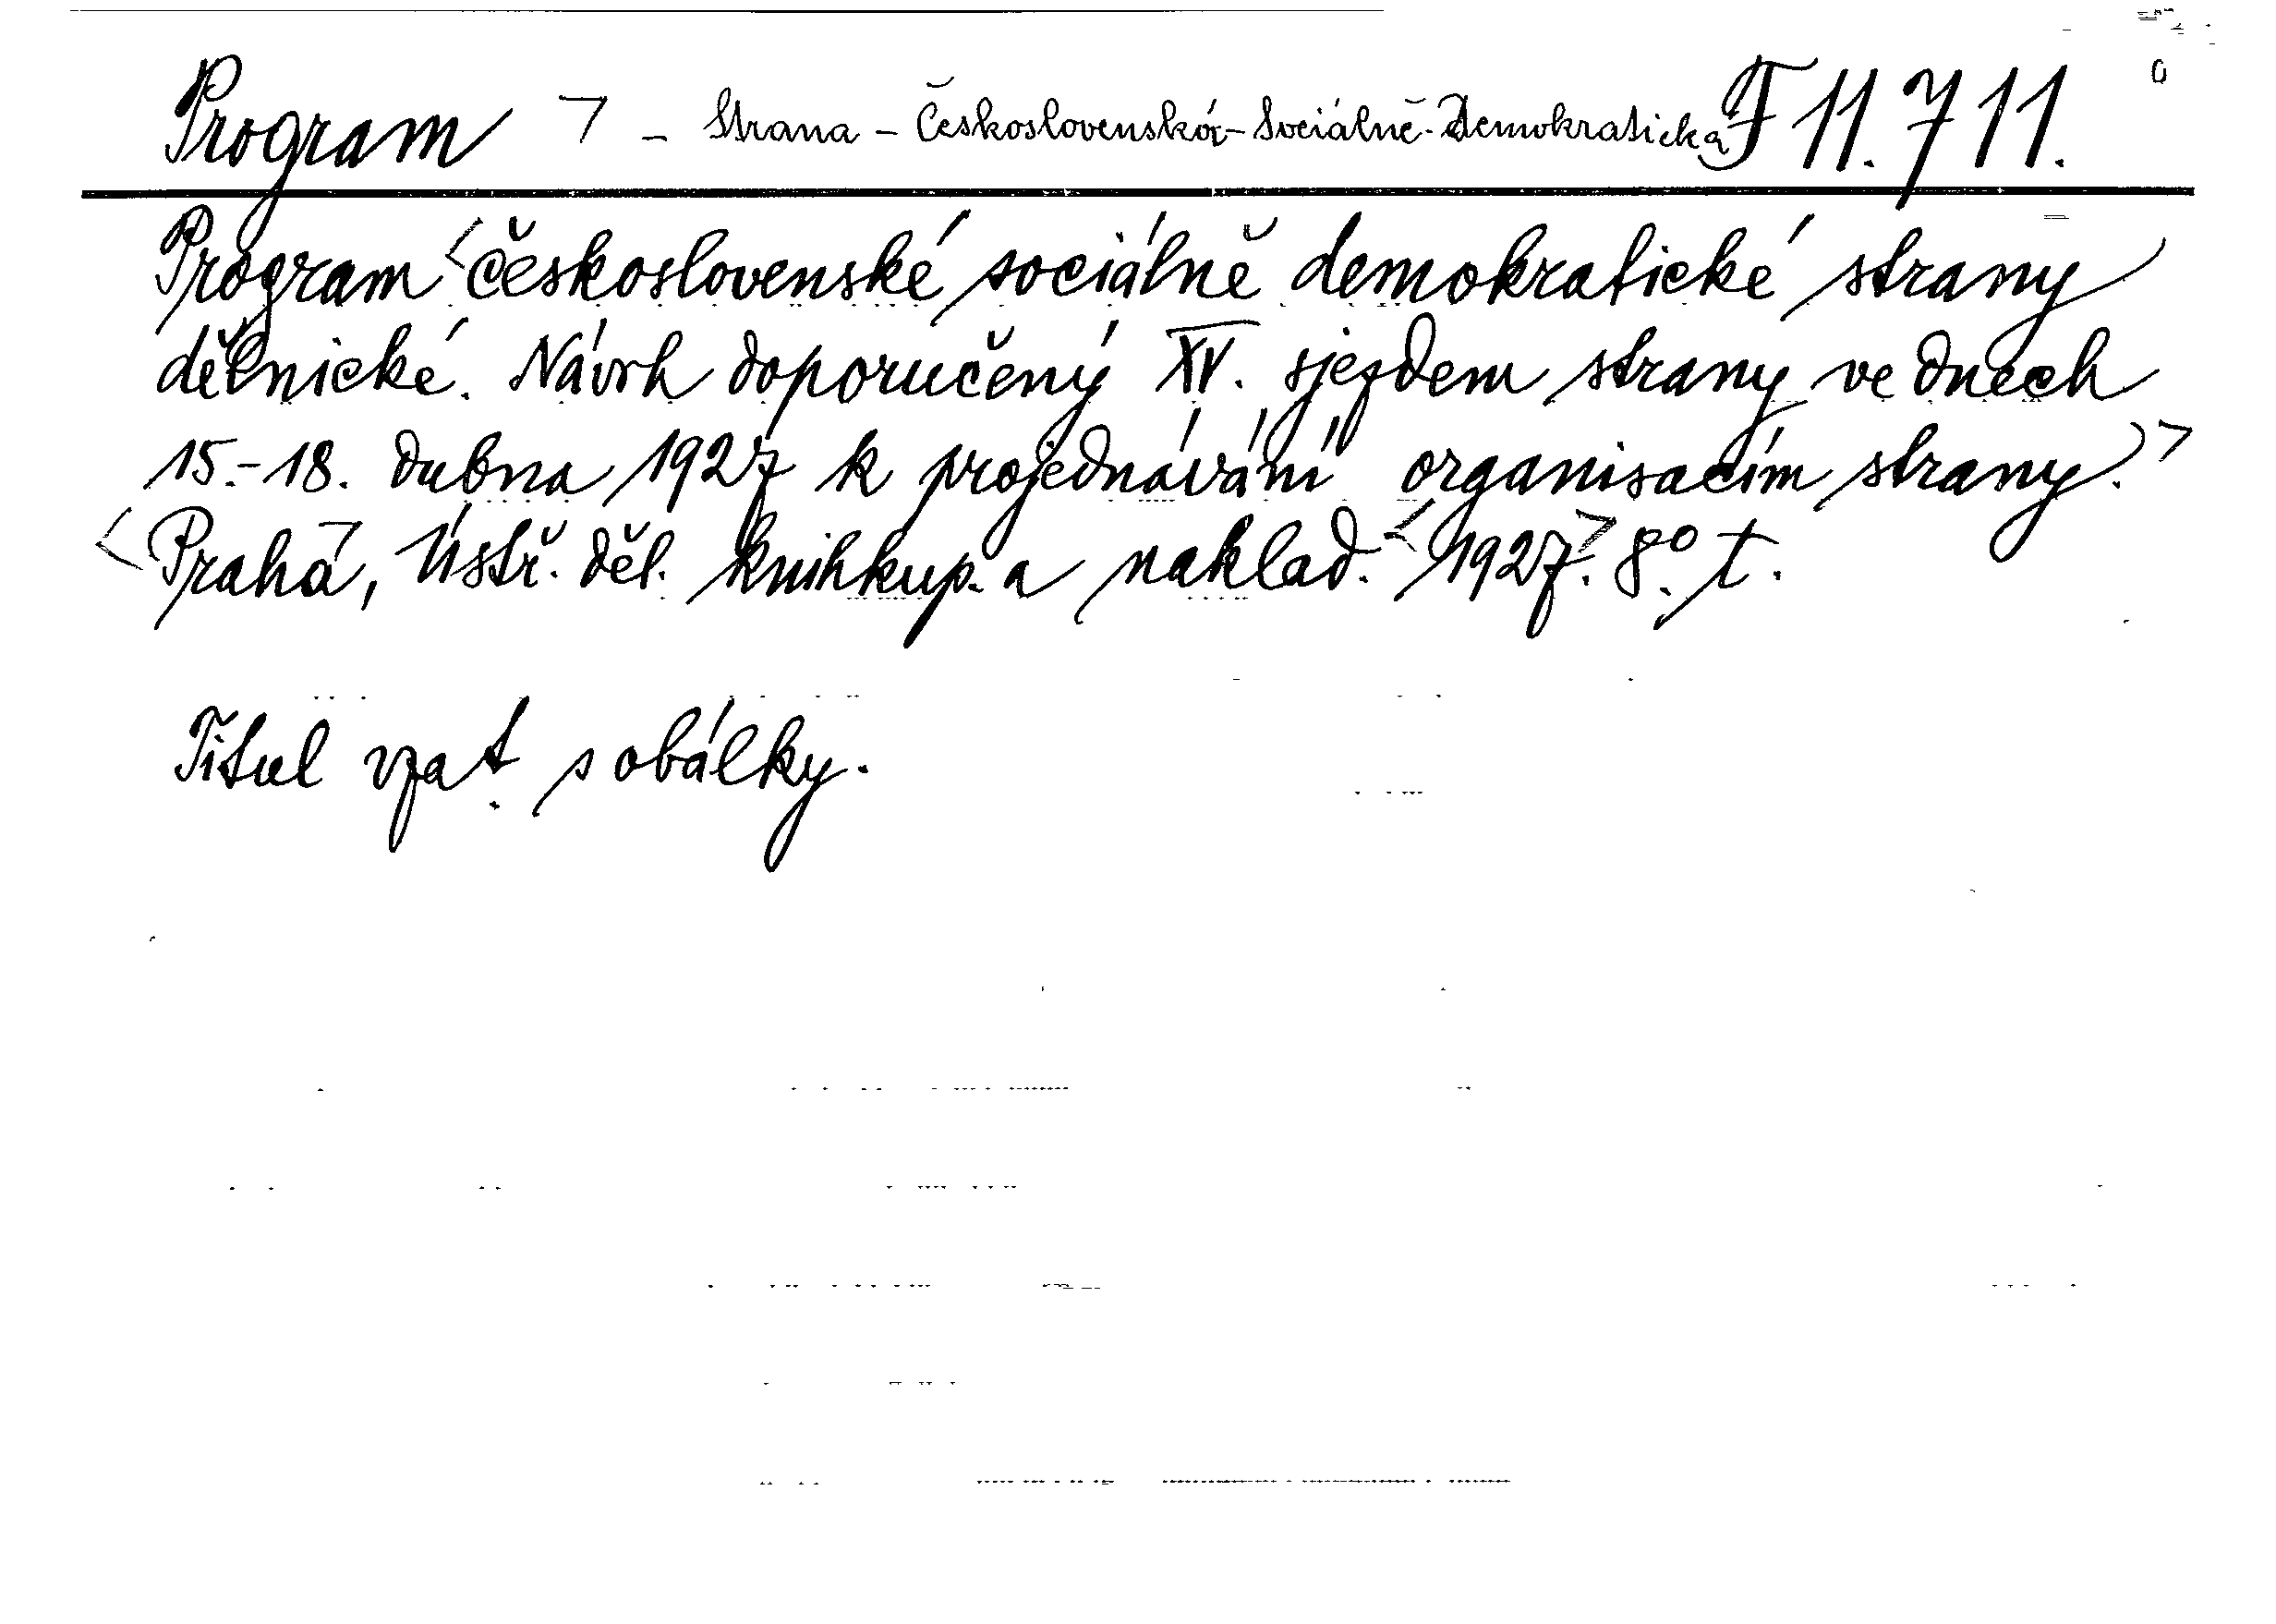 Program > - Strana - Československá - Sociálně - Demokratická F 11.711.
Program <československé sociálně demokratické strany
dělnické. Návrh doporučený XV. sjezdem strany ve dnech
15.-18. dubna 1927 k projednávání organisacím strany.>
<Praha>, Ústř. děl. knihkup. a naklad. <1927>. 8°. t.
Titul vzat s obálky.